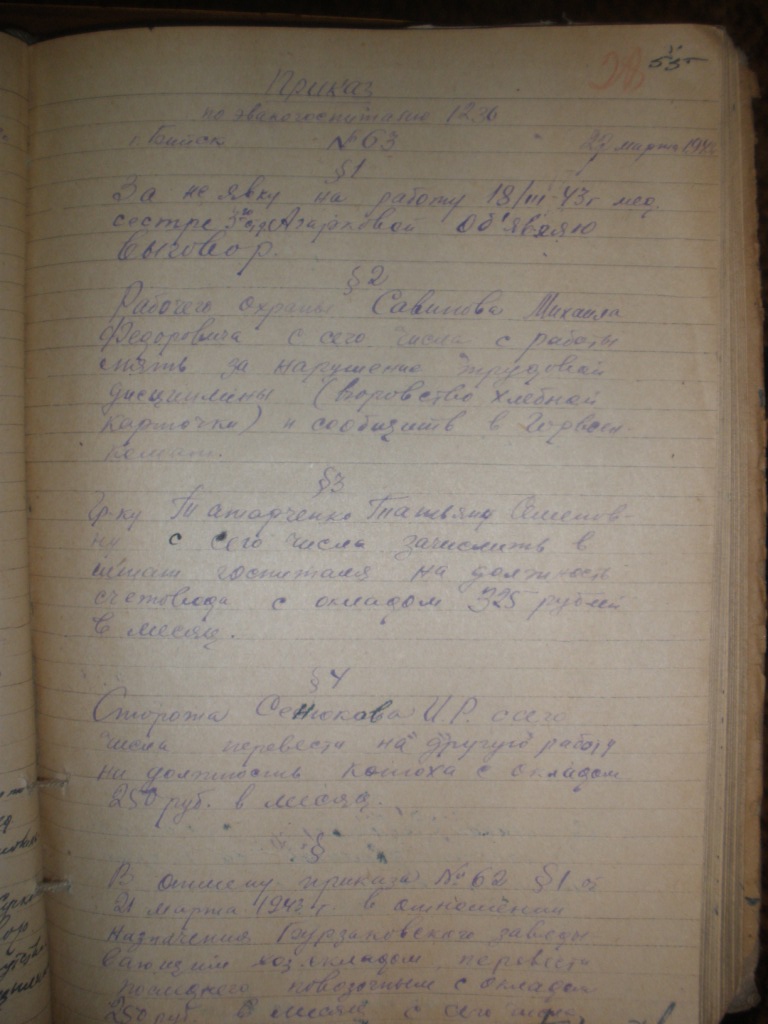 55
Приказ
по эвакогоспиталю 1236
г. Бийск №63 29 марта 194
§1
За не явку на работу 18/III-43г мед.
сестре Об'являю
выговор.
§2
Рабочего охраны Савинова Михаила
Федоровича с сего числа с работы
снять за нарушение трудовой
дисциплины (воровство хлебной
карточки) и сообщить в Горвоен-
комат.
§3
Гр-ку Татарченко Татьяну Семенов-
ну с сего числа зачислить в
штат госпиталя на должность
счетовода с окладом 325 рублей
в месяц.
§4
Сторожа Сенюкова И.Р. с сего
числа перевести на другую работу
на должность конюха с окладом
250 руб. в месяц.
§
В отмену приказа №62 §1 от
21 марта 1943 г. в отношении
назначения заведы
вающим складом, перевести
последнего повозочным с окладом
250 руб. в месяц с сего числа